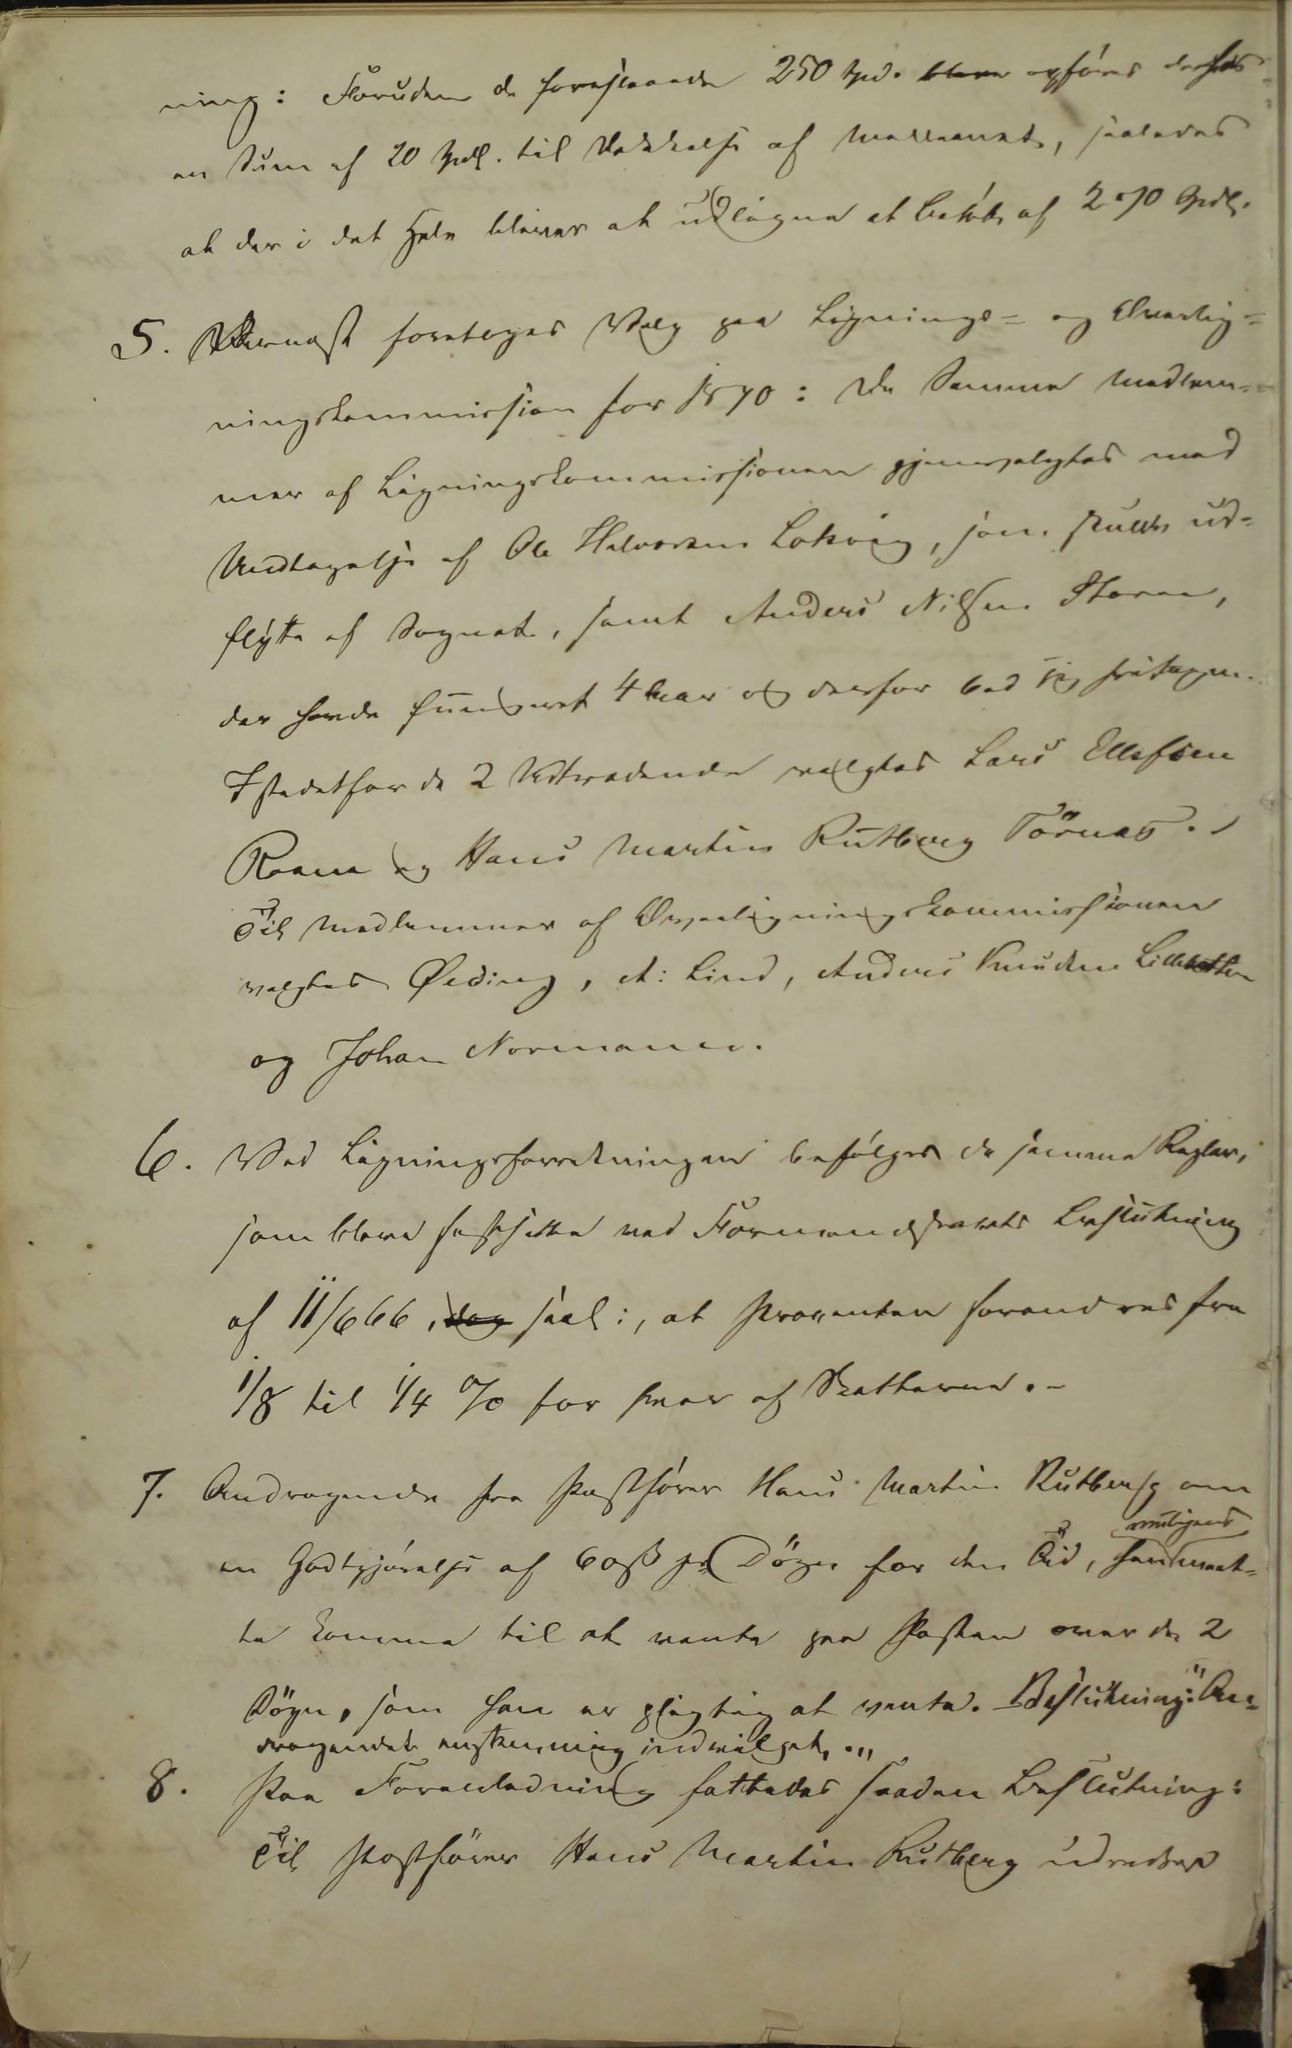 ning: Foruden de foreslaaede 250 Spd. blev opføres
en Sum af 20 Spdl. til Dækkelse af, saaledes
at der i det Hele bliver at udligne et beløb af 270 Spdl.
5. Dernæst foretoges Valg paa Lignings- og Overlig-
ningskommission for 1870: De Samme Medlem-
mer af Ligningskommissionen gjenvalgtes med
Undtagelse af Ole Halvorsen Lokvig, som skulde ud-
flytte af Sognet, samt Anders Nilsen Storm,
der havde fungeret 4 Aar og derfor bad sig fritagen.
Istedetfor de 2 Udtrædende valgtes Lars Ellefsen
Raana og Hans Martin Rutberg Törnes.
Til Medlemmer af Overligningskommissionen
valgtes Øeding, A: Lind, Anders Knudsen
og Johan Normann.
6. Ved Ligningsforretningen befølges de samme Regler,
som bleve fastsatte ved Formandskabets Beslutning
af 11/6 66, dog saal:, at Procenten forandres fra
1/8 til 1/4 % for hver af Skatterne.-
7. Andragende fra Postfører Hans Martin Rutberg om
en Godtgjørelse af 60 ß pr Dögn for den Tid, han muligens maat-
te komme til at vente paa Posten over de 2
Dögn, som han er pligtig at vente. Beslutning: "An-
dragendet enstemmig indvilget."
8. Paa Foranledning fattedes saadan Beslutning:
Til Postfører Hans Martin Rutberg udredes